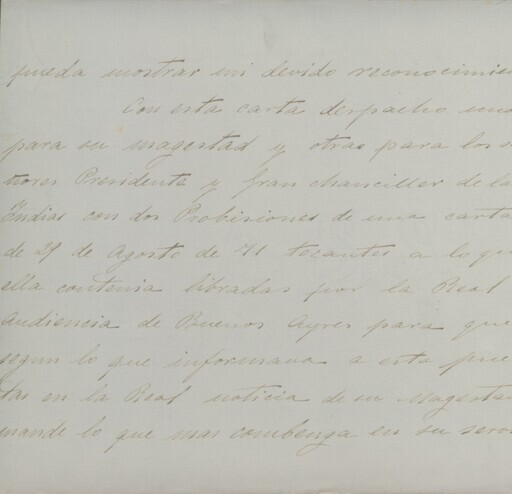 pueda mostrar mi devido reconocimien
Con esta carta despacho una
para su magestad y otras para los se
ñores Presidente y gran chanciller de la
Indias con dos Probisiones de una carta
de 29 de Agosto de 71 tocantes a lo qu
ella contenia libradas por la Real
audiencia de Buenos Ayres para que
segun lo que informava a esta pue
tas en la Real noticia de su Magesta
mande lo que mas combenga en su servi